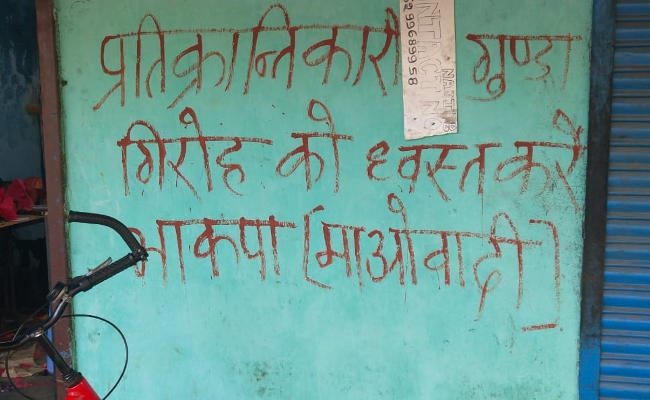 प्रतिक्रान्तिकारी गुण्डा
गिरोह को ध्वस्त करें
भाकपा [माओवादी]
CONTACT NO
9968995 8